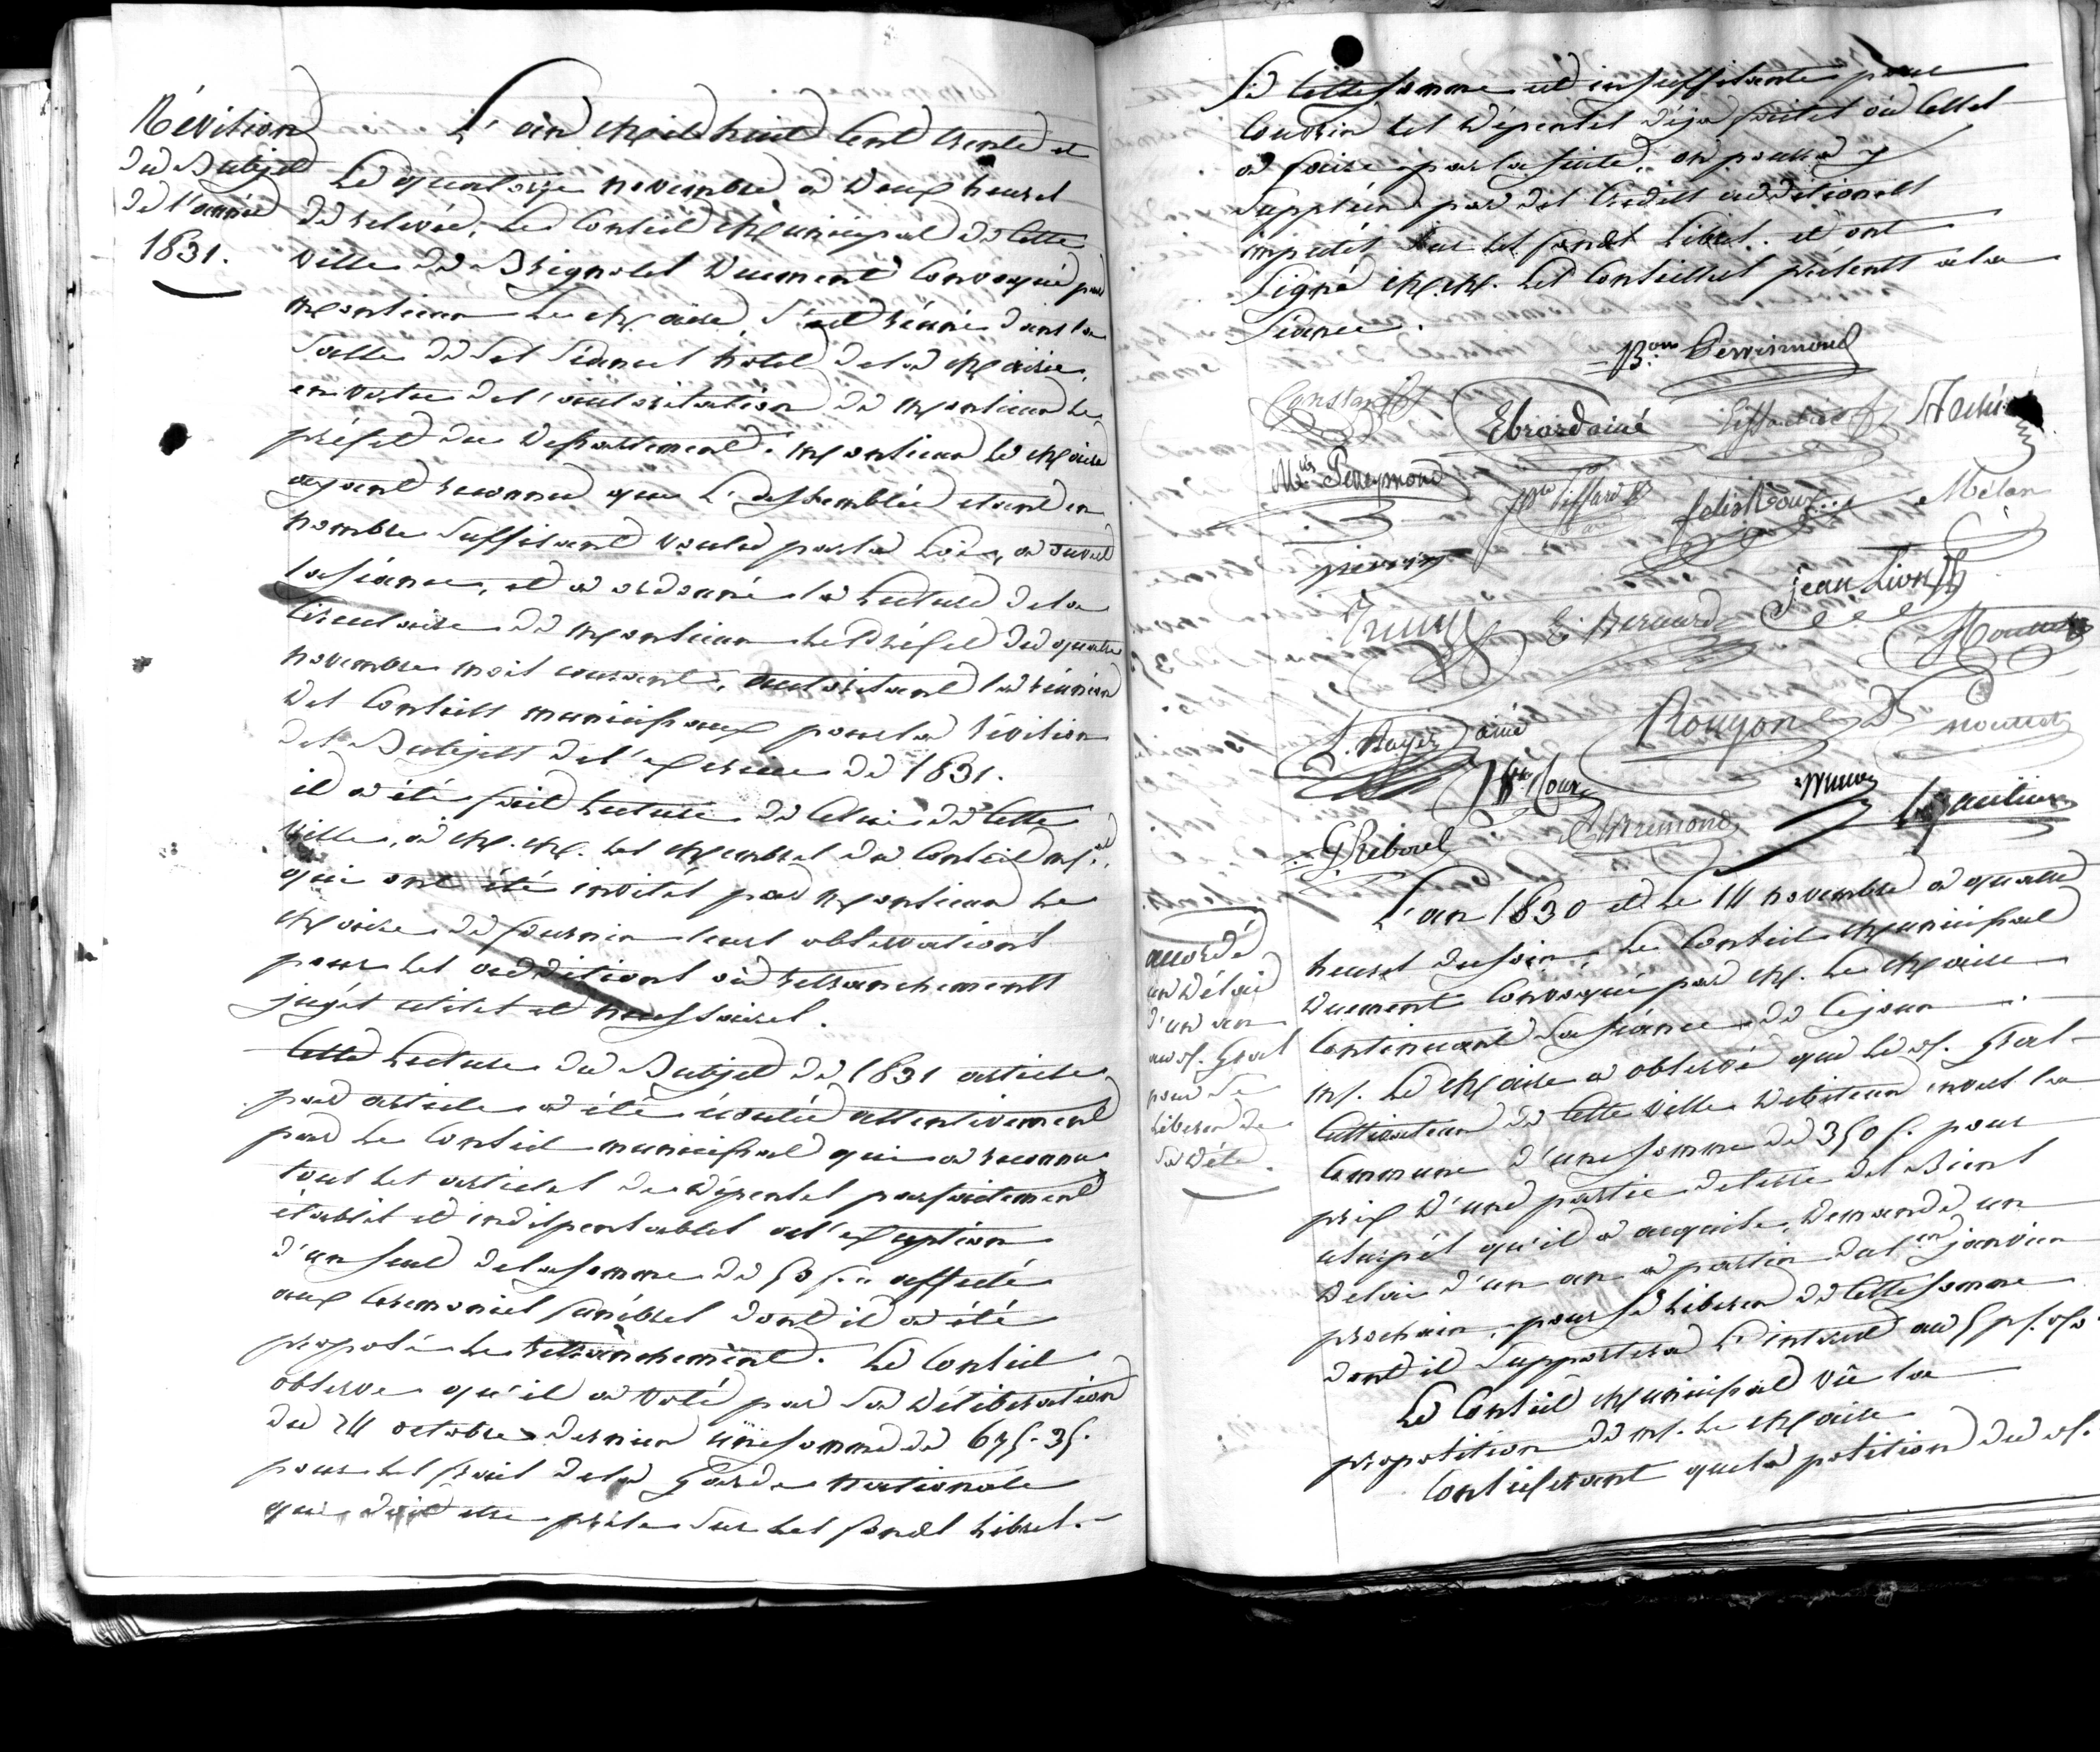 Révision
du Budjet
de l'année
1831.
L'an mil huit cent trente et
Le quatorze novembre à deux heures
de relevée, Le Conseil Municipal de cette
ville de Brignoles duement convoqué par
monsieur Le Maire, s'est réuni dans la
salle de ses séances hotel de la Mairie,
en vertu de l'autorisation de monsieur Le
préfet du département. monsieur le Maire
ayant reconnu que L'assemblée etant en
nombre suffisant voulu par la Loi, a ouvert
la séance, et a ordonné la Lecture de la
Circulaire de monsieur Le Préfet du quatre
novembre mois courant, autorisant la réunion
des Conseils municipaux pour la révision
des Budjets de l'exercice de 1831.
il a été fait Lecture de celui de cette
ville, à M.M. les Membres du Conseil m.al
qui ont été invités par monsieur Le
Maire de fournir leurs observations
pour les additions ou retranchements
jugés utiles et necessaires.
Cette Lecture du Budjet de 1831 article
par article a été écoutée attentivement
par Le Conseil municipal qui a reconnu
tous les articles de dépenses parfaitement
établis et indispensables à l'exception
d'un seul de la somme de 50 f. affecté
aux ceremonies funèbres dont il a été
proposé Le retranchement. Le Conseil
observe qu'il a voté par sa délibération
du 24 octobre dernier une somme de 675. 35.
pour les frais de la Garde nationale
qui doit etre prise sur les fonds libres.
Si cette somme est insuffisante pour
Couvrir les dépenses déja faites ou celles
à faire par la suite, on pourra y
suppléer par des Credits additionels
imputés sur les fonds Libres. et ont
signé M.M. Les Conseillers présents à la
séance.
B.on Perrimond
Constans
Ebrard ainé
M.us Peneymond
J.n Tiffard
felix Roux
Mélan
E Bernard
jean Lion
ainé
Rougon
Nourrat
Reboul
Bremond
Gautier
accordé
un délai
d'un an
au s. Gral
pour se
Liberer de
sa dète.
L'an 1830 et Le 14 novembre à quatre
heures du soir, Le Conseil Municipal
duement Convoqué par M. Le Maire
Continuant la séance de ce jour.
M. Le Maire a observé que Le s. Gral
Cultivateur de cette ville debiteur envers la
Commune d'une somme de 350 f. pour
prix d'une partie de terre des Biens
usurpés qu'il a acquise, demande un
delai d'un an à partir du 1er janvier
prochain, pour se liberer de cette somme
dont il supportera L'interet au 5 p. o/o.
Le Conseil Municipal vû la
proposition de m. Le Maire
Considerant que la position du s.